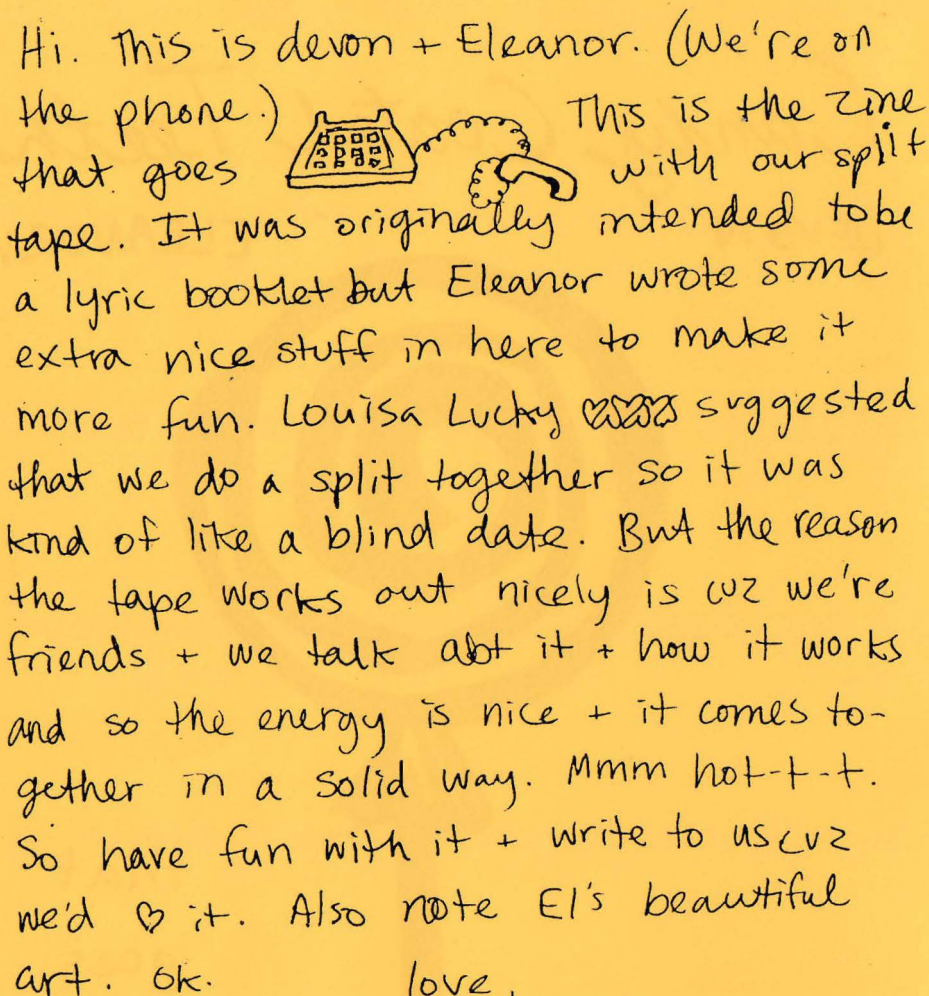 Hi. This is devon + Eleanor. (We're on
the phone.) This is the zine
that goes with our split
tape. It was originally intended to be
a lyric booklet but Eleanor wrote some
extra nice stuff in here to make it
more fun. Louisa Lucky suggested
that we do a split together so it was
kind of like a blind date. But the reason
the tape works out nicely is cuz we're
friends + we talk abt it + how it works
and so the energy is nice + it comes to-
gether in a solid way. Mmm hot-t-t.
So have fun with it + write to us cuz
we'd ♡ it. Also note El's beautiful
art. ok. love,